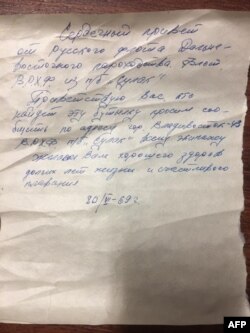 Сердечный привет
от Русского флота Дальне-
восточного пароходства. Флот
ВРХФ из п/б "Сулак"
Приветствую Вас кто
найдет эту бутылку просим соо
бщить по адресу гор Владивосток-43
ВРХФ п/б "Сулак" всему экипажу
Желаем Вам хорошего здоровья
долгих лет жизни и счастливого
плавания
20/VI-69 г.
AFP